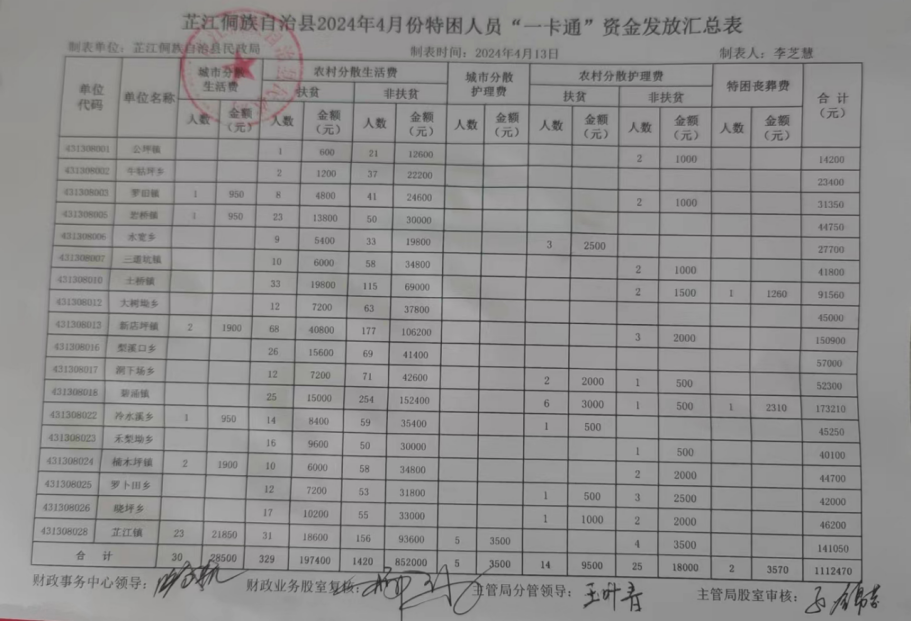 芷江侗族自治县2024年4月份特困人员“一卡通”资金发放汇总表
制表单位：芷江侗族自治县民政局 制表时间：2024年4月13日 制表人：李芝慧
单位代码 单位名称 城市分散生活费 农村分散生活费 城市分散护理费 农村分散护理费 特困丧葬费 合计（元）
扶贫 非扶贫 扶贫 非扶贫
人数 金额（元） 人数 金额（元） 人数 金额（元） 人数 金额（元） 人数 金额（元） 人数 金额（元） 人数 金额（元）
431308001 公坪镇 1 600 21 12600 2 1000 14200
431308002 牛牯坪乡 2 1200 37 22200 23400
431308003 罗旧镇 1 950 8 4800 41 24600 2 1000 31350
431308005 岩桥镇 1 950 23 13800 50 30000 44750
431308006 水宽乡 9 5400 33 19800 3 2500 27700
431308007 三道坑镇 10 6000 58 34800 2 1000 41800
431308010 土桥镇 33 19800 115 69000 2 1500 1 1260 91560
431308012 大树坳乡 12 7200 63 37800 45000
431308013 新店坪镇 2 1900 68 40800 177 106200 3 2000 150900
431308016 梨溪口乡 26 15600 69 41400 57000
431308017 洞下场乡 12 7200 71 42600 2 2000 1 500 52300
431308018 碧涌镇 25 15000 254 152400 6 3000 1 500 1 2310 173210
431308022 冷水溪乡 1 950 14 8400 59 35400 1 500 45250
431308023 禾梨坳乡 16 9600 50 30000 1 500 40100
431308024 楠木坪镇 2 1900 10 6000 58 34800 2 2000 44700
431308025 罗卜田乡 12 7200 53 31800 1 500 3 2500 42000
431308026 晓坪乡 17 10200 55 33000 1 1000 2 2000 46200
431308028 芷江镇 23 21850 31 18600 156 93600 5 3500 4 3500 141050
合 计 30 28500 329 197400 1420 852000 5 3500 14 9500 25 18000 2 3570 1112470
财政事务中心领导： 财政业务股室复核： 主管局分管领导：王叶青 主管局股室审核：